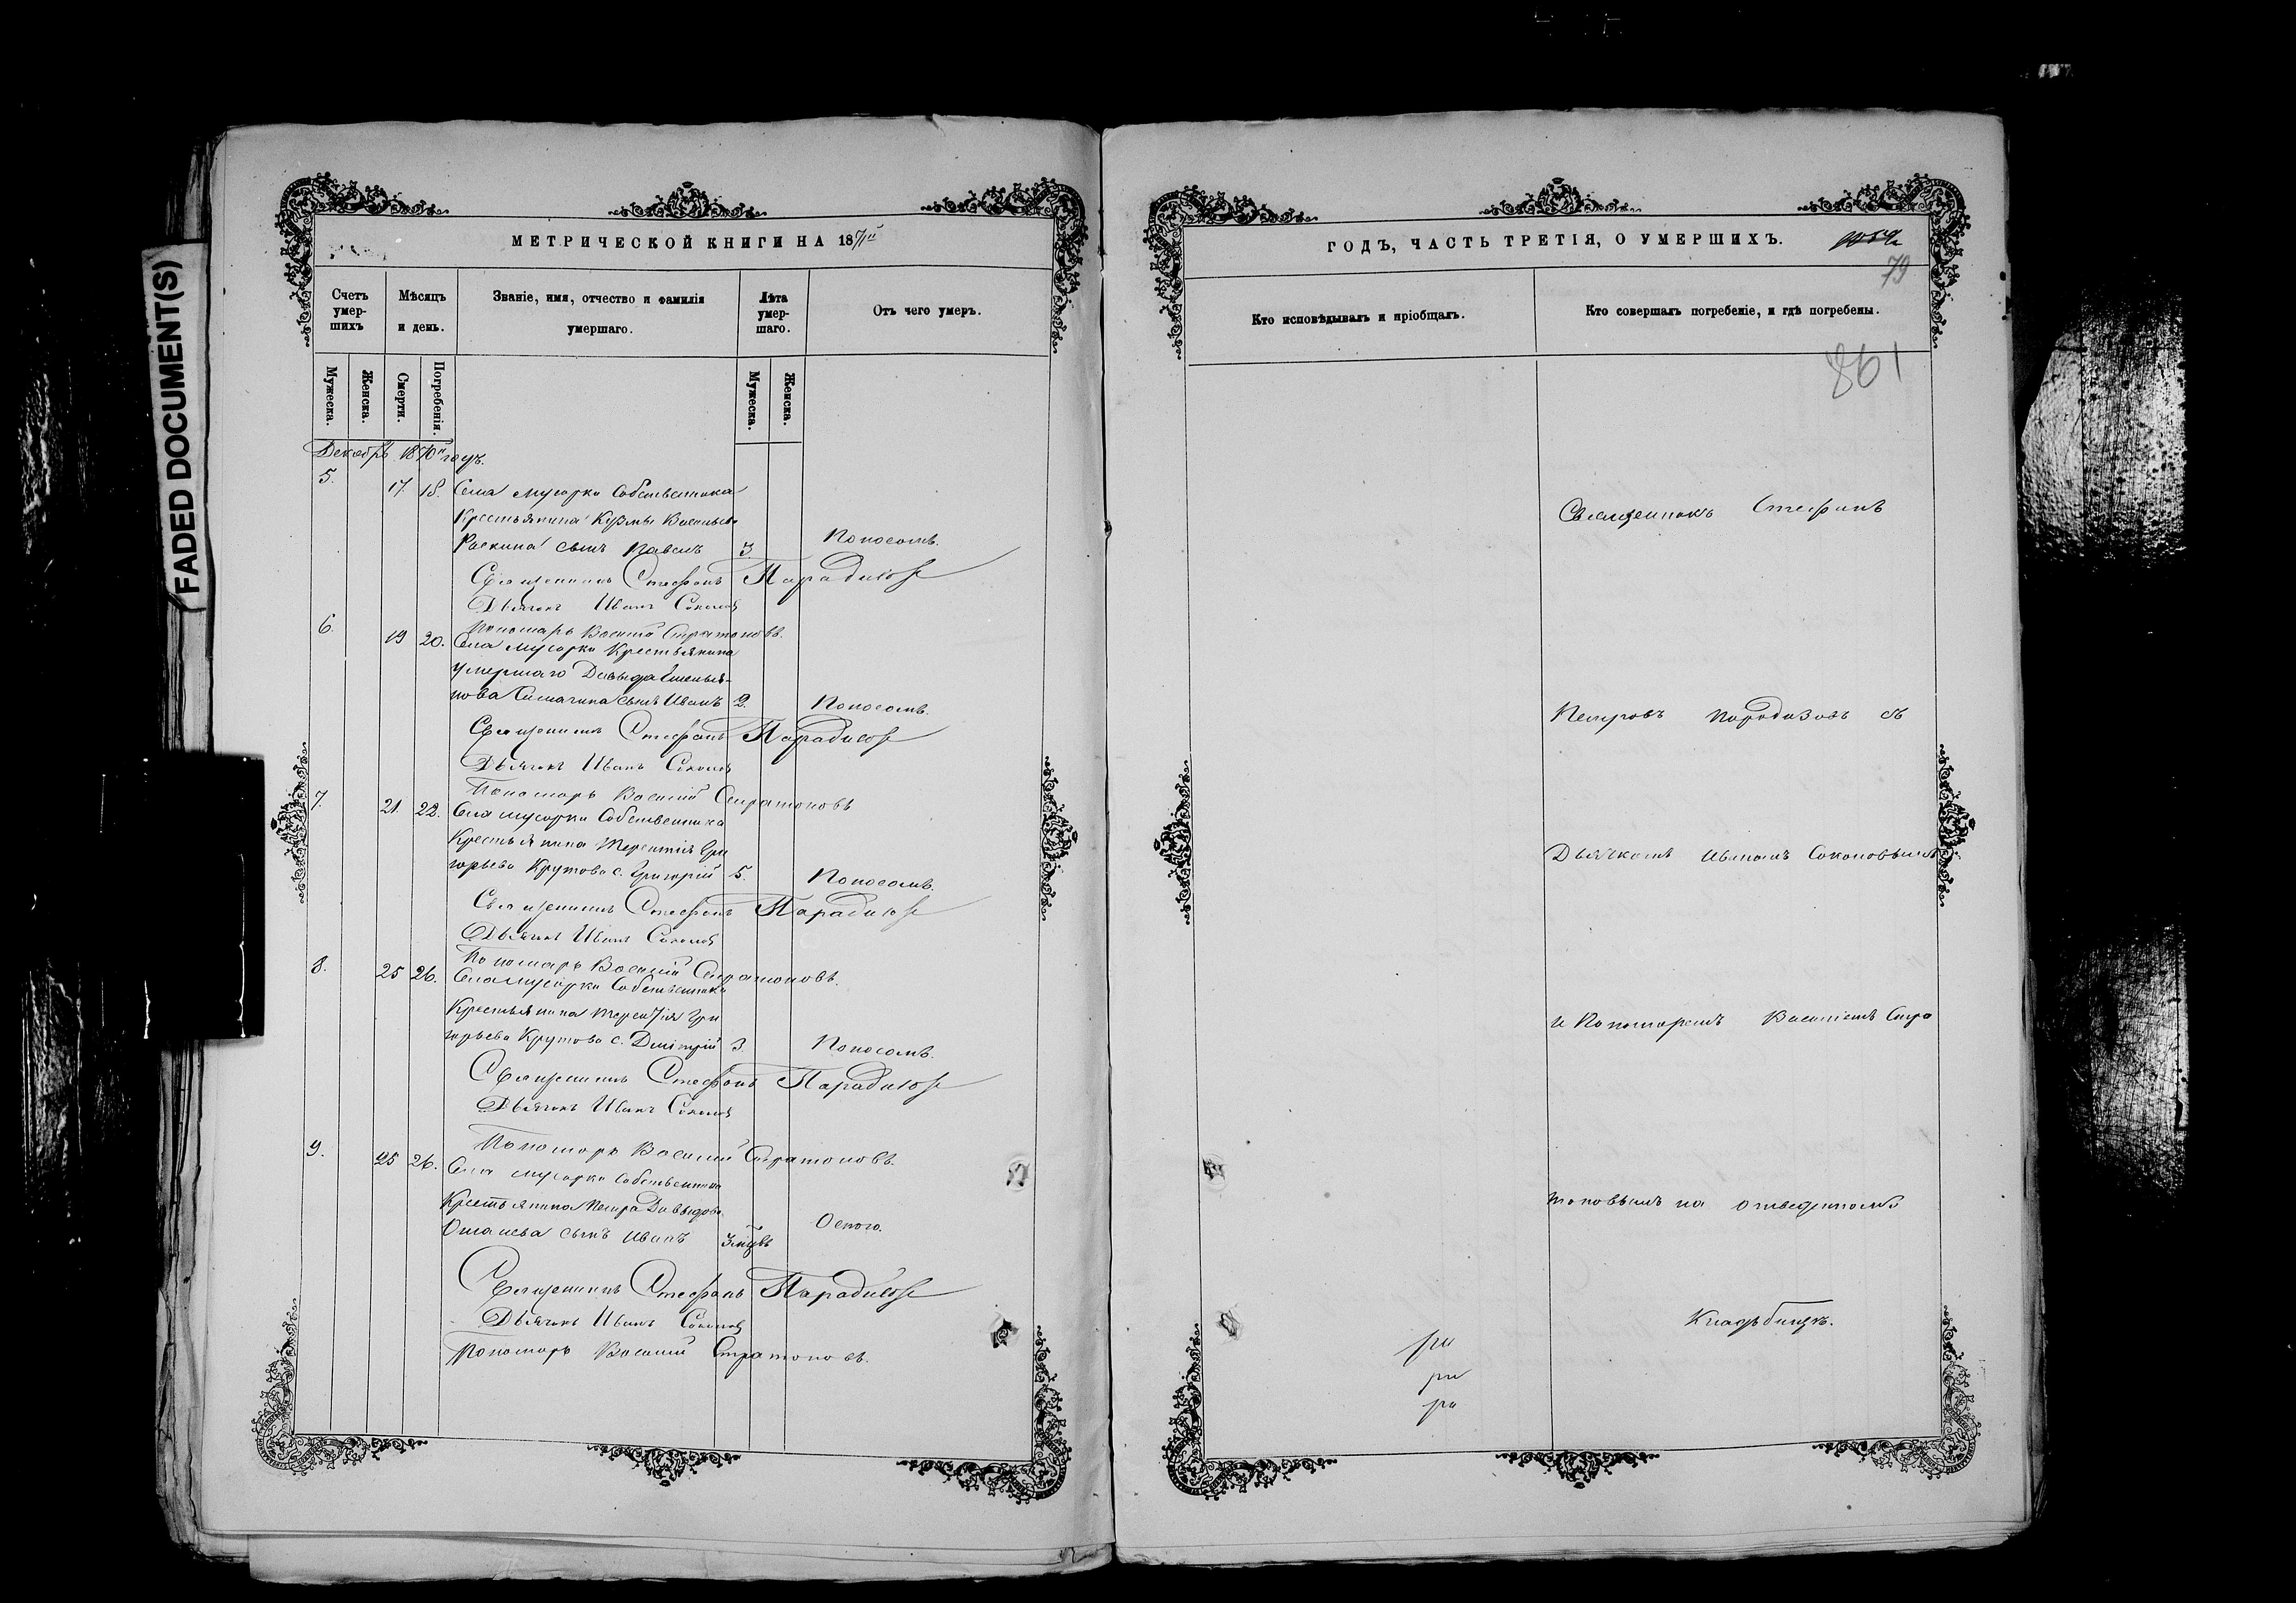 FADED DOCUMENT(S)
МЕТРИЧЕСКОЙ КНИГИ НА 1871й
Счетъ умер-шихъ
Мѣсяцъ и день.
Званіе, имя, отчество и фамилія умершаго.
Лѣта умер-шаго.
Отъ чего умеръ.
Мужеска.
Женска.
Смерти.
Погребенія.
Мужеска.
Женска.
Декабрь 1870го года.
5. 17. 18. Села Мусорки Собственника
Крестьянина Кузмы Васильева
сынъ Павелъ 3. Поносомъ.
Священникъ Стефанъ Парадизов
Дьячокъ Иванъ Соколов
Пономарь Василій Стратоновъ.
6. 19 20. Села Мусорки Крестьянина
умершаго Давыда
сынъ Иванъ 2. Поносомъ.
Священникъ Стефанъ Парадизов
Дьячокъ Иванъ Соколов
Пономарь Василій Стратоновъ
7. 21 22. Села Мусорки Собственника
Крестьянина Терентія Гри
горьева Крутова с. Григорій 5. Поносомъ.
Священникъ Стефанъ Парадизов
Дьячокъ Иванъ Соколов
Пономарь Василій Стратоновъ.
8. 25 26. Села Мусорки Собственника
Крестьянина Терентія Гри
горьева Крутова с. Дмитрій 3. Поносомъ.
Священникъ Стефанъ Парадизов
Дьячокъ Иванъ Соколов
Пономарь Василій Стратоновъ.
9. 25 26. Села Мусорки Собственника
Крестьянина Петра Давыдова
сынъ Иванъ Оспою.
Священникъ Стефанъ Парадизов
Дьячокъ Иванъ Соколов
Пономарь Василій Стратоновъ.
ГОДЪ, ЧАСТЬ ТРЕТІЯ, О УМЕРШИХЪ.
79
Кто исповѣдывалъ и пріобщалъ.
Кто совершалъ погребеніе, и гдѣ погребены.
861
Священникъ Стефанъ
Петровъ Парадизовъ съ
Дьячкомъ Иваномъ Соколовымъ
и Пономаремъ Василіемъ Стра
тоновымъ на отведенномъ
Кладбищѣ.